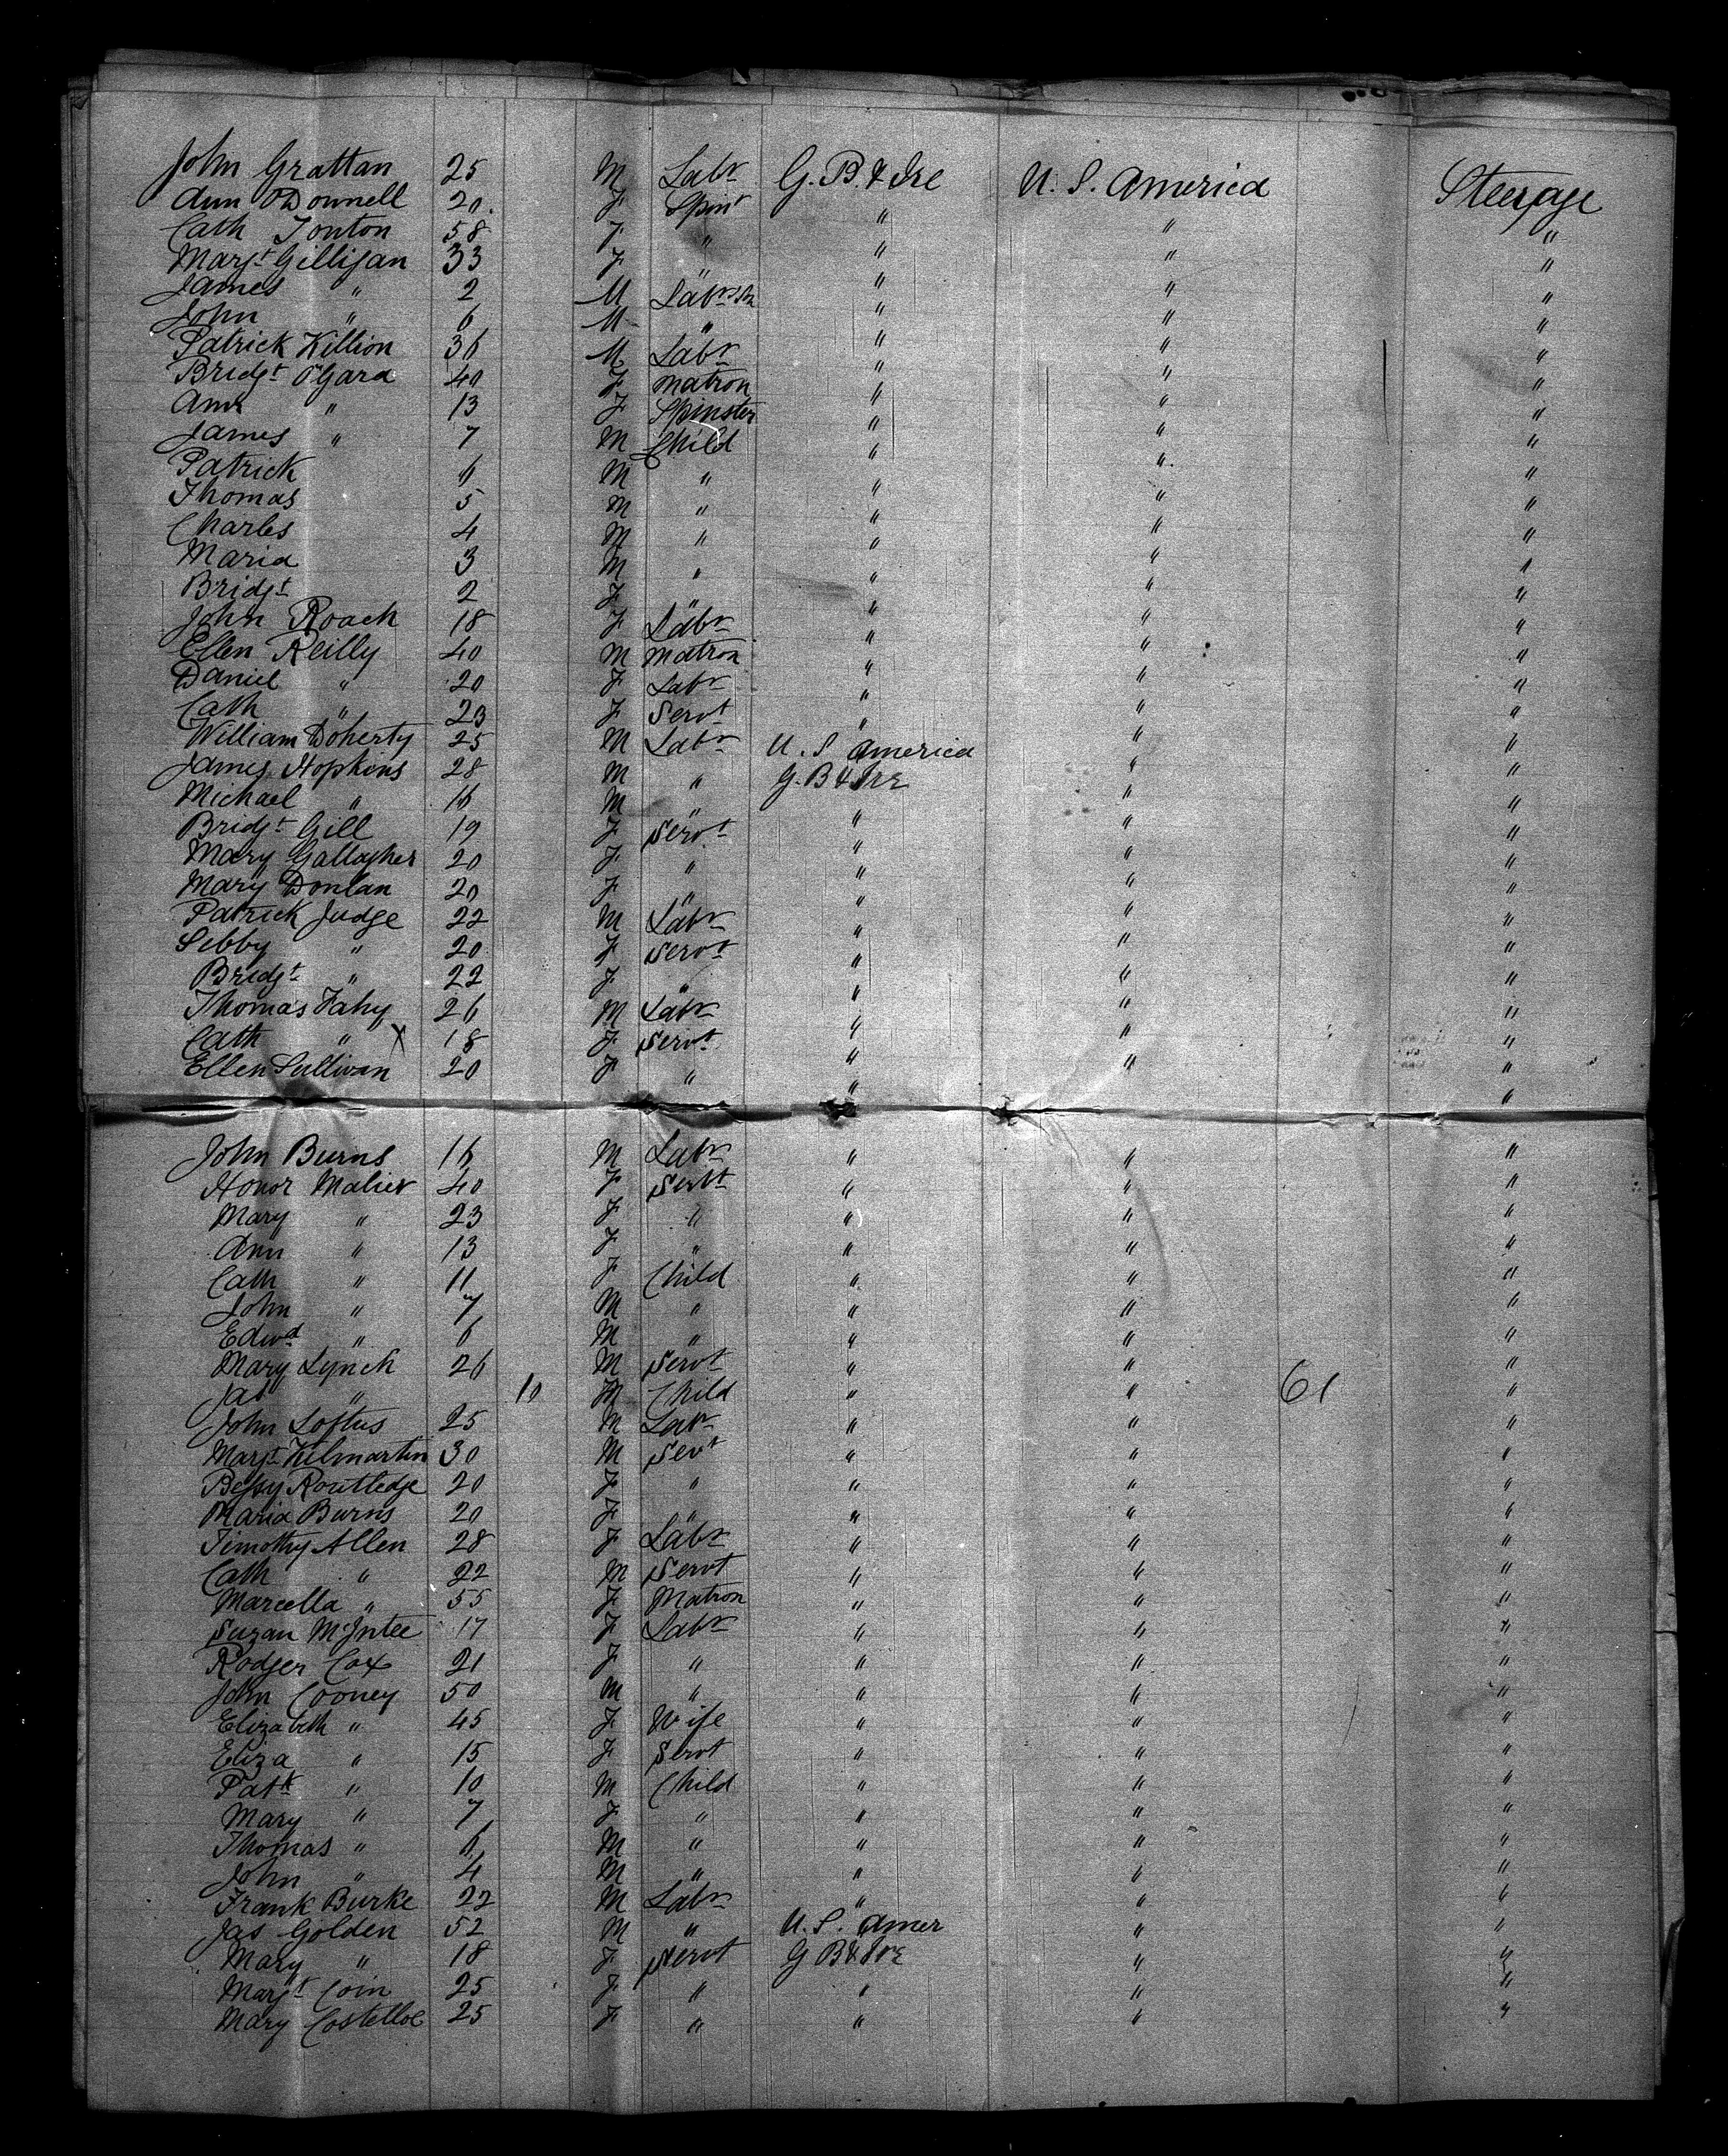 John Grattan 25 M Labr G. B. & Ire U. S. America Steerage
Ann O'Donnell 20 F Spinr " " "
Cath Fonton 58 F " " " "
Margt Gilligan 33 F " " "
James " 2 M Labrs Son " " "
John " 6 M " " " "
Patrick Killion 36 M Labr " " "
Bridgt O'Gara 40 F Matron " " "
Ann " 13 F Spinster " " "
James " 7 M Child " " "
Patrick 6 M " " " "
Thomas 5 M " " " "
Charles 4 M " " " "
Maria 3 M " " " "
Bridgt 2 F " " " "
John Roach 18 F Labr " " "
Ellen Reilly 40 M Matron " " "
Daniel " 20 F Labr " " "
Cath " 23 F Servt " " "
William Doherty 25 M Labr U. S. America " "
James Hopkins 28 M " G. B & Ire " "
Michael " 16 M " " " "
Bridgt Gill 19 F Servt " " "
Mary Gallagher 20 F " " " "
Mary Donlan 20 F " " " "
Patrick Judge 22 M Labr " " "
Sebby " 20 F Servt " " "
Bridgt " 22 F " " " "
Thomas Fahy 26 M Labr " " "
Cath " X 18 F Servt " " "
Ellen Sullivan 20 F " " " "
John Burns 16 M Labr " " "
Honor Maliev 40 F Servt " " "
Mary " 23 F " " " "
Ann " 13 F " " " "
Cath " 11 F Child " " "
John " 7 M " " " "
Edwd " 6 M " " " "
Mary Lynch 26 M Servt " " "
Jas " 10 M Child " " 61 "
John Loftus 25 M Labr " " "
Margt Kilmartin 30 M Sevt " " "
Bessy Routledge 20 F " " " "
Maria Burns 20 F " " " "
Timothy Allen 28 F Labr " " "
Cath " 22 M Servt " " "
Marcella " 55 F Matron " " "
Suzan McIntee 17 F Labr " " "
Rodger Cox 21 F " " " "
John Cooney 50 M " " " "
Elizabeth " 45 F Wife " " "
Eliza " 15 F Servt " " "
Patk " 10 M Child " " "
Mary " 7 F " " " "
Thomas " 6 M " " " "
John " 4 M " " " "
Frank Burke 22 M Labr " " "
Jas Golden 52 M " U. S. Amer " "
Mary " 18 F Servt G B & Ire " "
Margt Coin 25 F " " " "
Mary Costelloe 25 F " " " "